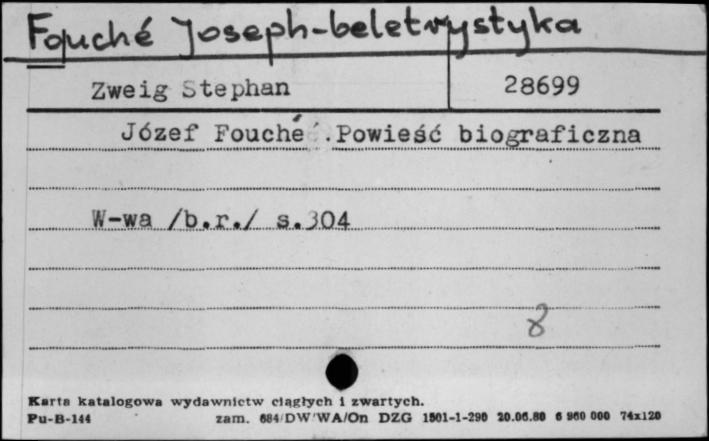 Fouché Joseph-beletrystyka
Zweig Stephan 28699
Józef Fouché. Powieść biograficzna
W-wa /b.r./ s.304
8
Karta katalogowa wydawnictw ciągłych i zwartych.
Pu-B-144 zam. 684/DW/WA/On DZG 1501-1-290 20.06.80 6 960 000 74x120